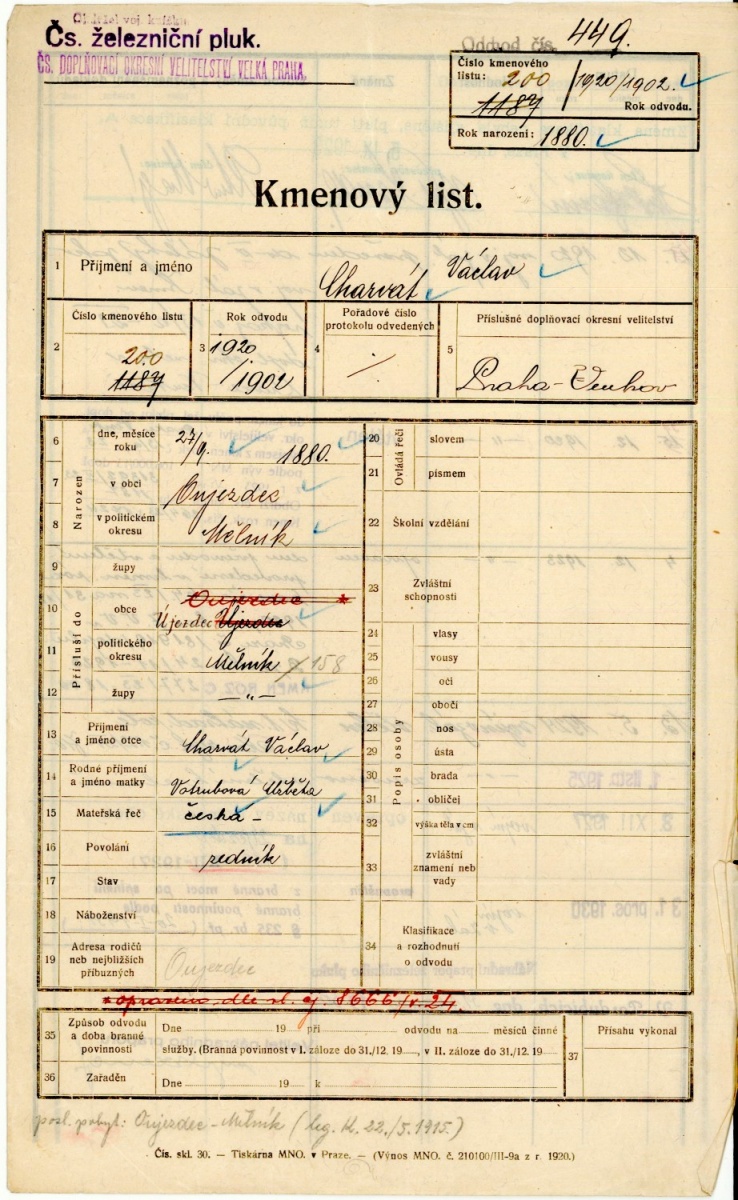 Obdržel voj. knížku
Čs. železniční pluk.
ČS. DOPLŇOVACÍ OKRESNÍ VELITELSTVÍ VELKÁ PRAHA.
Odvod čís. 449.
Číslo kmenového
listu: 200
1187 / 1920/1902.
Rok odvodu.
Rok narození: 1880.
Kmenový list.
1 Příjmení a jméno Charvát Václav
2 Číslo kmenového listu 200 1187
3 Rok odvodu 1920/1902
4 Pořadové číslo
protokolu odvedených /
5 Příslušné doplňovací okresní velitelství
Praha-Venkov
Narozen
6 dne, měsíce
roku 27/9. 1880.
7 v obci Oujezdec
8 v politickém
okresu Mělník
Přísluší do
9 župy
10 obce Oujezdec *
Újezdec Újezdec
11 politického
okresu Mělník 158
12 župy — „ —
13 Příjmení
a jméno otce Charvát Václav
14 Rodné příjmení
a jméno matky Votrubová Alžběta
15 Mateřská řeč česká -
16 Povolání
17 Stav
18 Náboženství
19 Adresa rodičů
neb nejbližších
příbuzných Oujezdec
Ovládá řeči
20 slovem
21 písmem
22 Školní vzdělání
23 Zvláštní
schopnosti
Popis osoby
24 vlasy
25 vousy
26 oči
27 obočí
28 nos
29 ústa
30 brada
31 obličej
32 výška těla v cm
33 zvláštní
znamení neb
vady
34 Klasifikace
a rozhodnutí
o odvodu
* opraveno dle sl. čj. 8666/V-24.
35 Způsob odvodu
a doba branné
povinnosti
Dne 19 při odvodu na měsíců činné
služby. (Branná povinnost v I. záloze do 31./12. 19 , v II. záloze do 31./12. 19
36 Zařaděn
Dne 19 k
37 Přísahu vykonal
posl. pobyt: Oujezdec - Mělník (leg. K. 22./5.1915.)
Čís. skl. 30. — Tiskárna MNO. v Praze. — (Výnos MNO. č. 210100/III-9a z r. 1920.)